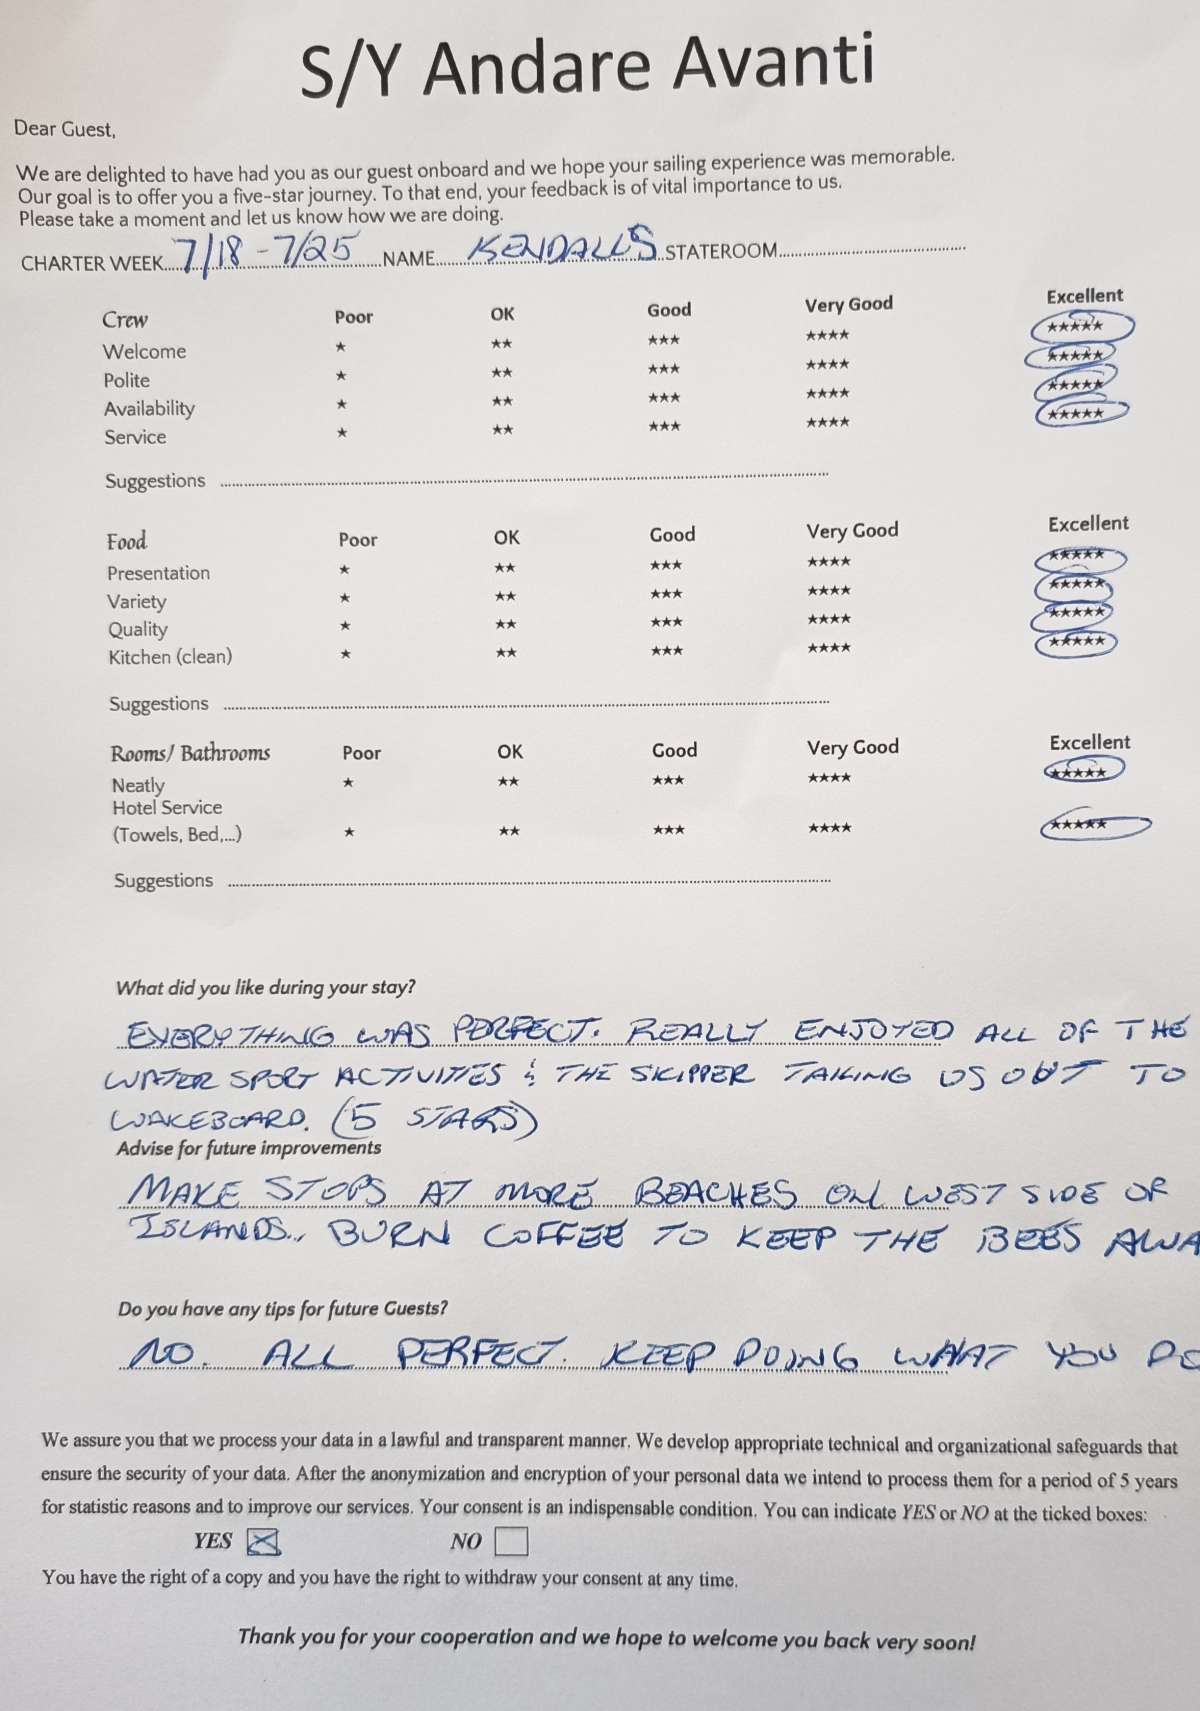 S/Y Andare Avanti
Dear Guest,
We are delighted to have had you as our guest onboard and we hope your sailing experience was memorable.
Our goal is to offer you a five-star journey. To that end, your feedback is of vital importance to us.
Please take a moment and let us know how we are doing.
CHARTER WEEK 7/18 - 7/25 NAME KENDALL'S STATEROOM
Crew Poor OK Good Very Good Excellent
Welcome ★ ★★ ★★★ ★★★★ ★★★★★
Polite ★ ★★ ★★★ ★★★★ ★★★★★
Availability ★ ★★ ★★★ ★★★★ ★★★★★
Service ★ ★★ ★★★ ★★★★ ★★★★★
Suggestions
Food Poor OK Good Very Good Excellent
Presentation ★ ★★ ★★★ ★★★★ ★★★★★
Variety ★ ★★ ★★★ ★★★★ ★★★★★
Quality ★ ★★ ★★★ ★★★★ ★★★★★
Kitchen (clean) ★ ★★ ★★★ ★★★★ ★★★★★
Suggestions
Rooms/ Bathrooms Poor OK Good Very Good Excellent
Neatly ★ ★★ ★★★ ★★★★ ★★★★★
Hotel Service
(Towels, Bed,...) ★ ★★ ★★★ ★★★★ ★★★★★
Suggestions
What did you like during your stay?
EVERYTHING WAS PERFECT. REALLY ENJOYED ALL OF THE
WATER SPORT ACTIVITIES & THE SKIPPER TAKING US OUT TO
WAKEBOARD. (5 STARS)
Advise for future improvements
MAKE STOPS AT MORE BEACHES ON WEST SIDE OF
ISLANDS., BURN COFFEE TO KEEP THE BEES AWA
Do you have any tips for future Guests?
NO. ALL PERFECT. KEEP DOING WHAT YOU DO
We assure you that we process your data in a lawful and transparent manner. We develop appropriate technical and organizational safeguards that
ensure the security of your data. After the anonymization and encryption of your personal data we intend to process them for a period of 5 years
for statistic reasons and to improve our services. Your consent is an indispensable condition. You can indicate YES or NO at the ticked boxes:
YES NO
You have the right of a copy and you have the right to withdraw your consent at any time.
Thank you for your cooperation and we hope to welcome you back very soon!